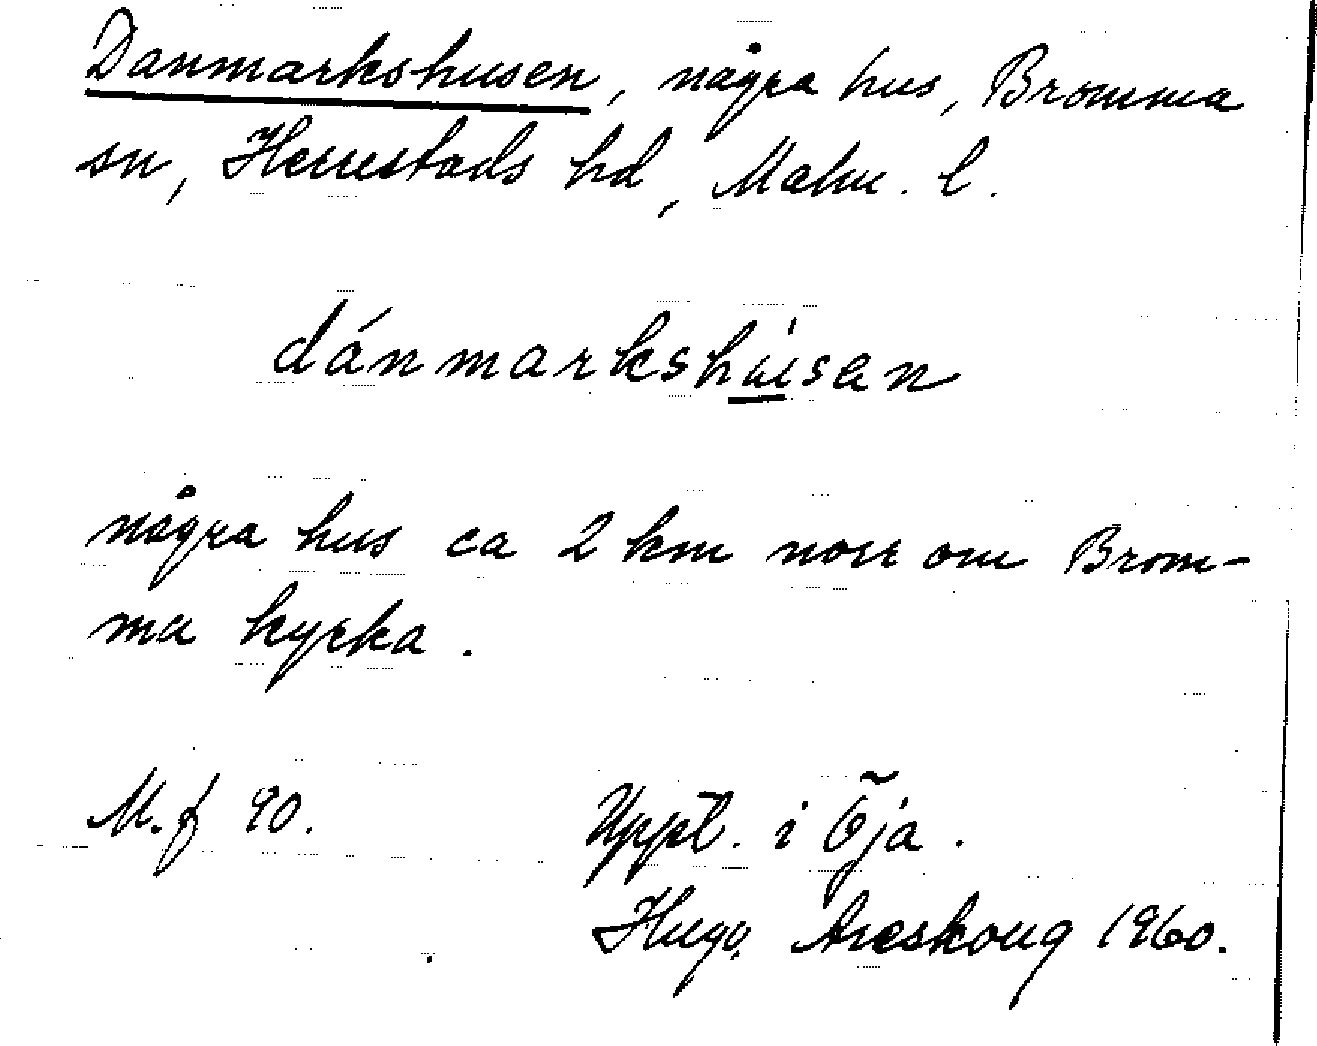 Danmarkshusen, några hus, Bromma
sn, Herrestads hd, Malm. l.
dánmarkshúsen
några hus ca 2 km norr om Brom-
ma kyrka.
M. f 90. Uppt. i Öja.
Hugo Areskoug 1960.